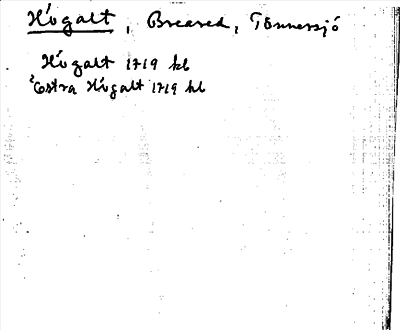 Högalt, Breared, Tönnersjö
Högalt 1719 kb
Östra Högalt 1719 kb